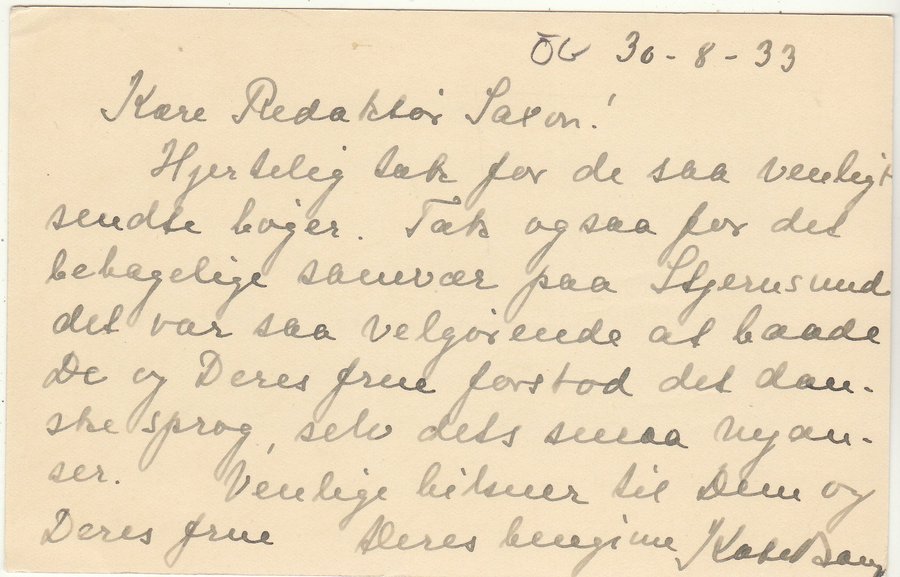 ÖG 30-8-33
Kære Redaktör Saxon!
Hjertelig tak for de saa venligt
sendte böger. Tak ogsaa for det
behagelige samvær paa Stjernsund
det var saa velgörende at baade
De og Deres frue forstod det dan-
ske sprog, selv dets smaa nyan-
ser. Venlige hilsner til Dem og
Deres frue Deres hengivne Kate Bang